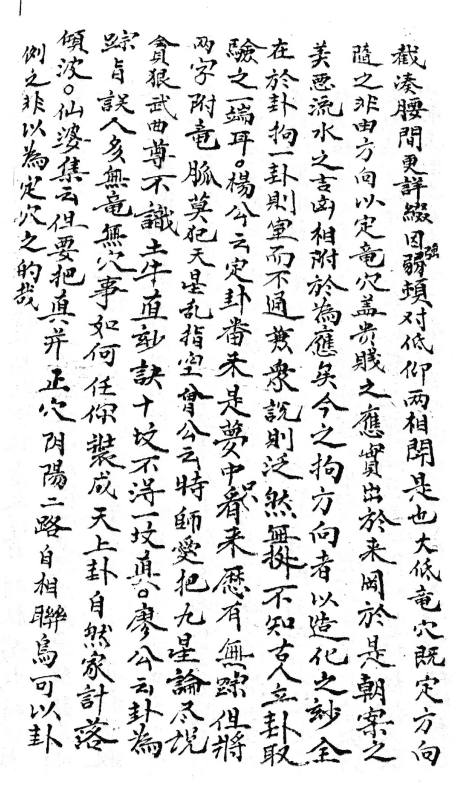 截湊腰間更詳綴因強弱頻对低仰两相閗是也大低竜穴既定方向
隨之非由方向以定竜穴盖贵賤之應實出於来岡於是朝案之
美悪流水之吉凶相附於為應矣今之拘方向者以造化之妙全
在於卦拘一卦則窒而不通兼衆說則泛然無拠不知古人立卦取
驗之一端耳。楊公云定卦番来是夢中看来歴有無踪但將
两字附竜脈莫犯天星乱指空曾公云時師愛把九星論尽説
貪狼武曲尊不識土牛直妙訣十坟不淂一坟真。廖公云卦為
宗旨誤人多無竜無穴事如何任你裝成天上卦自然家計落
傾波。仙婆集云但要把真并正穴阴陽二路自相聯烏可以卦
例之非以為定穴之的哉